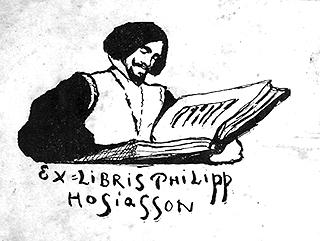 EX=LIBRIS PHILIPP
HOSIASSON